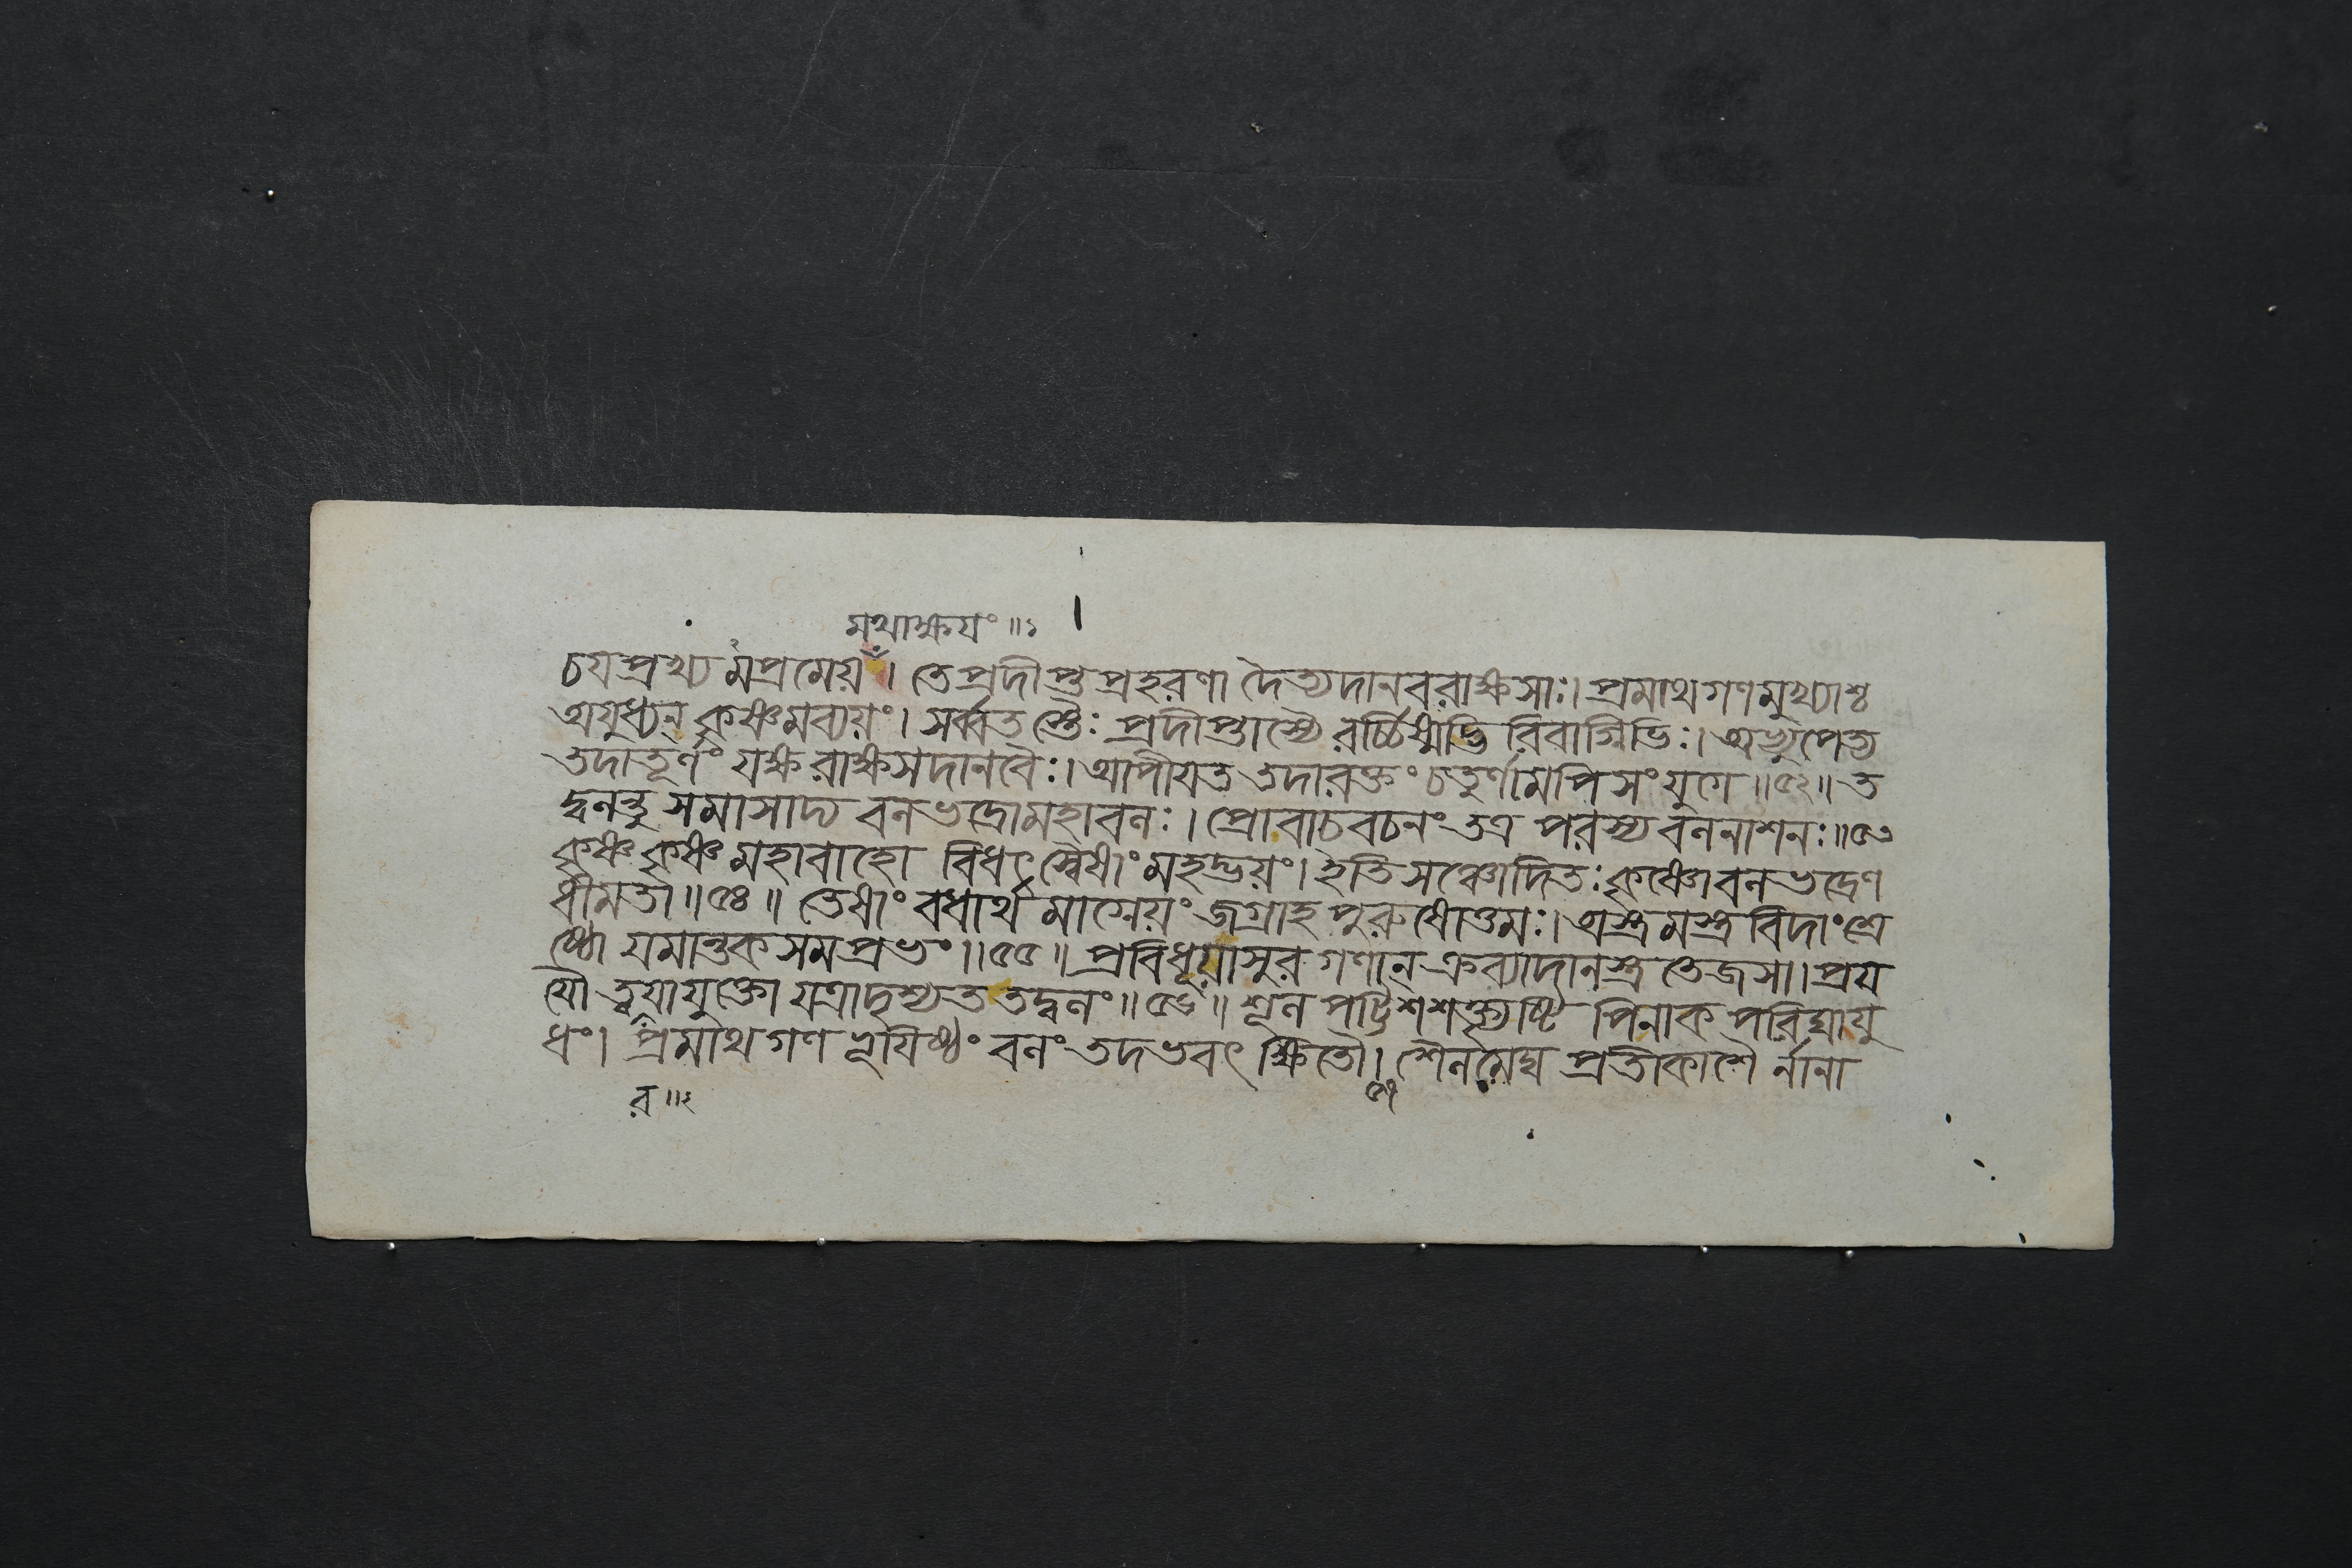 মথাক্ষয়ং॥১
চযপ্রখ্যমপ্রমেয়ং। তেপ্রদীপ্তপ্রহরণা দৈত্যদানবরাক্ষসাঃ। প্রমাথগণমুখ্যাশ্চ
অযুধ্যন্ কৃষ্ণমব্যয়ং। সর্ব্বতস্তৈঃ প্রদীপ্তাস্যৈ রর্চ্চিষ্মদ্ভি রিবাগ্নিভিঃ। অভ্যুপেত্য
তদাতূর্ণং যক্ষরাক্ষসদানবৈঃ। আপীযত তদারক্তং চতুর্ণামপিসংযুগে॥৫২॥ ত
দ্বলন্তু সমাসাদ্য বলভদ্রোমহাবলঃ। প্রোবাচবচনংতত্র পরস্য বলনাশনঃ॥৫৩
কৃষ্ণ কৃষ্ণ মহাবাহো বিধৎস্বৈষাং মহদ্ভয়ং। ইতি সঞ্চোদিতঃ কৃষ্ণোবলভদ্রেণ
ধীমতা॥৫৪॥ তেষাং বধার্থ মাগ্নেয়ং জগ্রাহ পুরুষোত্তমঃ। অস্ত্রমস্ত্রবিদাংশ্রে
ষ্ঠো যমান্তকসমপ্রভং॥৫৫॥ প্রবিধূয়াসুরগণান্ ক্রব্যাদানস্ত্রতেজসা। প্রয
যৌ ত্বরাযুক্তো যত্রাদৃশ্যত তদ্বলং॥৫৬॥ শূল পট্টিশশক্ত্যৃষ্টি পিনাক পরিঘাযু
ধং। প্রমাথগণ ভূযিষ্ঠং বলং তদভবৎ ক্ষিতৌ। শৈলমেঘ প্রতীকাশৈ র্নানা
র॥২
৫৭